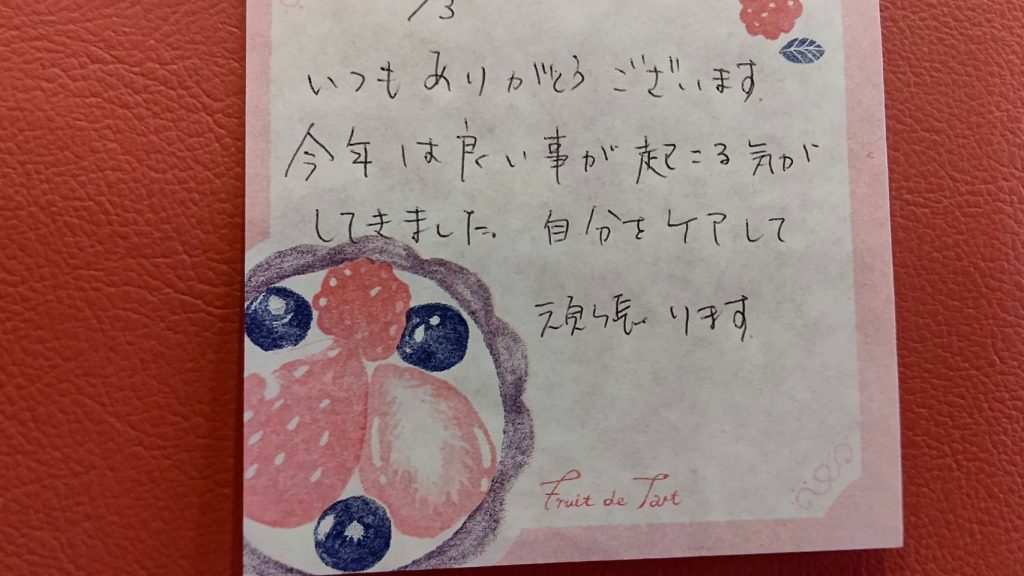 /3
いつもありがとうございます.
今年は良い事が起こる気が
してきました。自分をケアして
頑張ります.
Fruit de Tart